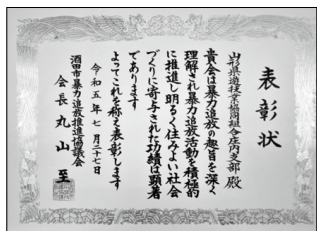 表彰状
山形県遊技業協同組合庄内支部 殿
貴会は暴力追放の趣旨を深く
理解され暴力追放活動を積極的
に推進し明るく住みよい社会
づくりに寄与された功績は顕著
であります
よってこれを称え表彰します
令和五年七月二十七日
酒田市暴力追放推進協議会
会長 丸山至